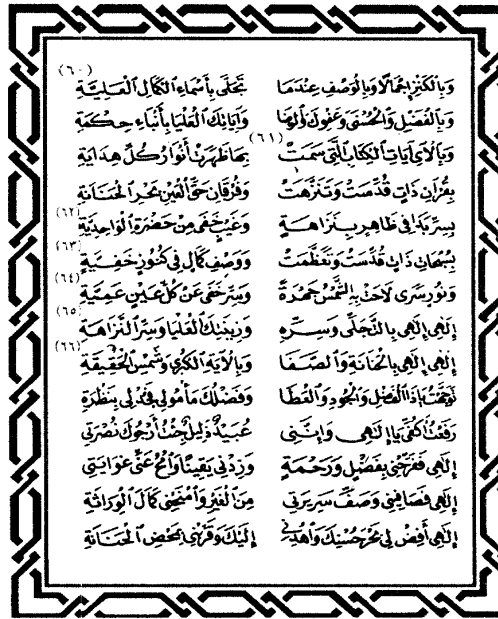 وَبِالْكَنْزِ إِجْمَالًا وَبِالْوَصْفِ عِنْدَمَا تَجَلَّى بِأَسْمَاءِ الْكَمَالِ الْعَلِيَّةِ (٦٠)
وَبِالْفَضْلِ وَالْحُسْنَى وَعَفْوِكَ وَالْوَفَا وَآيَاتِكَ الْعُلْيَا بِأَنْبَاءِ حِكْمَةِ
وَبِالْآيِ آيَاتِ الْكِتَابِ الَّتِي سَمَتْ (٦١) بِهَا ظَهَرَتْ أَنْوَارُ كُلِّ هِدَايَةِ
بِقُرْآنِ ذَاتٍ قُدِّسَتْ وَتَنَزَّهَتْ وَفُرْقَانِ حَقِّ الْعَيْنِ بَحْرِ الْحَنَانَةِ
بِسِرٍّ بَدَا فِي ظَاهِرٍ بِنَزَاهَةٍ وَغَيْبٍ خَفَى مِنْ حَضْرَةِ الْوَاحِدِيَّةِ (٦٢)
بِسُبْحَانِ ذَاتٍ قُدِّسَتْ وَتَعَظَّمَتْ وَوَصْفِ كَمَالٍ فِي كُنُوزٍ خَفِيَّةِ (٦٣)
وَنُورٍ سَرَى لَاحَتْ بِهِ الشَّمْسُ جَهْرَةً وَسِرٍّ خَفَى عَنْ كُلِّ عَيْنٍ عَمِيَّةِ (٦٤)
إِلَهِي إِلَهِي بِالتَّجَلِّي وَسِرِّهِ وَزِيتِكَ الْعُلْيَا وَسِرِّ النَّزَاهَةِ (٦٥)
إِلَهِي إِلَهِي بِالْحَنَانَةِ وَالصَّفَا وَبِالْآيَةِ الْكُبْرَى وَشَمْسِ الْحَقِيقَةِ (٦٦)
تَوَجَّهْتُ يَا ذَا الْفَضْلِ وَالْجُودِ وَالْعَطَا وَفَضْلُكَ مَأْمُولِي فَجُدْ لِي بِنَظْرَةِ
رَفَعْتُ أَكُفِّي يَا إِلَهِي وَإِنَّنِي عُبَيْدٌ ذَلِيلٌ جِئْتُ أَرْجُوكَ نُصْرَتِي
إِلَهِي فَفَرِّحْنِي بِفَضْلٍ وَرَحْمَةٍ وَزِدْنِي يَقِينًا وَامْحُ عَنِّي غَوَايَتِي
إِلَهِي فَصَافِينِي وَصَفِّ سَرِيرَتِي مِنَ الْغَيْرِ وَامْنَحْنِي كَمَالَ الْوِرَاثَةِ
إِلَهِي أَفِضْ لِي بَحْرَ حُسْنِكَ وَاهْدِنِي إِلَيْكَ وَقَرِّبْنِي بِمَحْضِ الْحَنَانَةِ